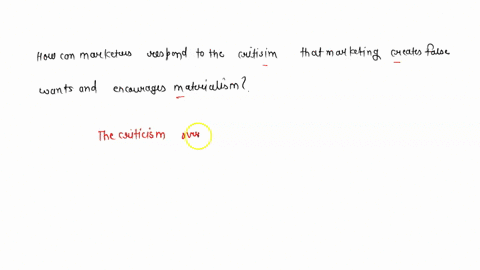 How can marketers respond to the critisim that marketing creates false
wants and encourages materialism?
The criticism over